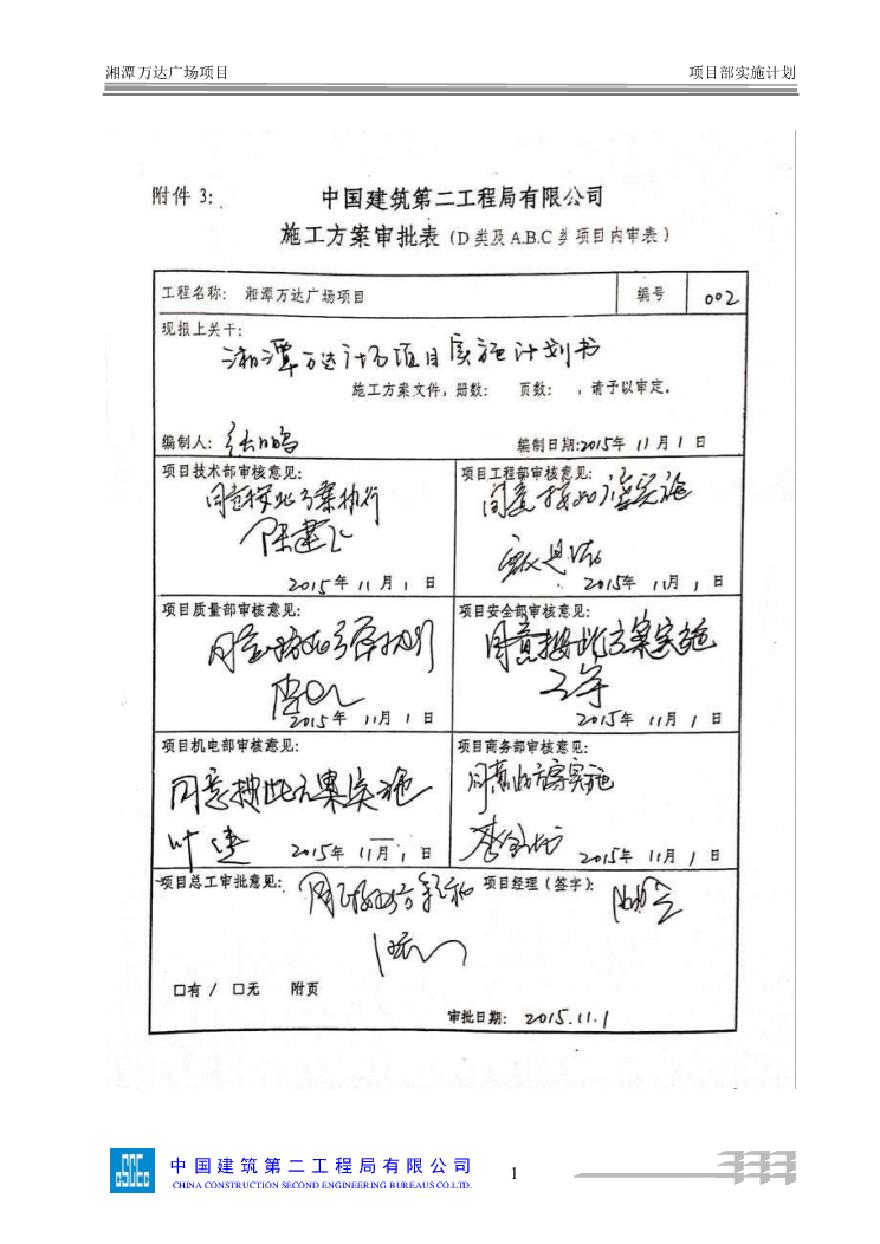 湘潭万达广场项目 项目部实施计划
附件 3:
中国建筑第二工程局有限公司
施工方案审批表(D类及A.B.C类项目内审表)
工程名称: 湘潭万达广场项目 编号 002
现报上关于:
湘潭万达广场项目实施计划书
施工方案文件,册数: 页数: ,请予以审定.
编制人: 编制日期:2015年 11月 1日
项目技术部审核意见: 项目工程部审核意见:
同意按此方案执行 同意按此方案实施
2015年 11月 1日 2015年 11月 1日
项目质量部审核意见: 项目安全部审核意见:
同意按此方案执行 同意按此方案实施
2015年 11月 1日 2015年 11月 1日
项目机电部审核意见: 项目商务部审核意见:
同意按此方案实施 同意此方案实施
2015年 11月 1日 2015年 11月 1日
项目总工审批意见: 项目经理(签字):
口有 / 口无 附页
审批日期: 2015.11.1
中国建筑第二工程局有限公司
CHINA CONSTRUCTION SECOND ENGINEERING BUREAUS CO.LTD.
1